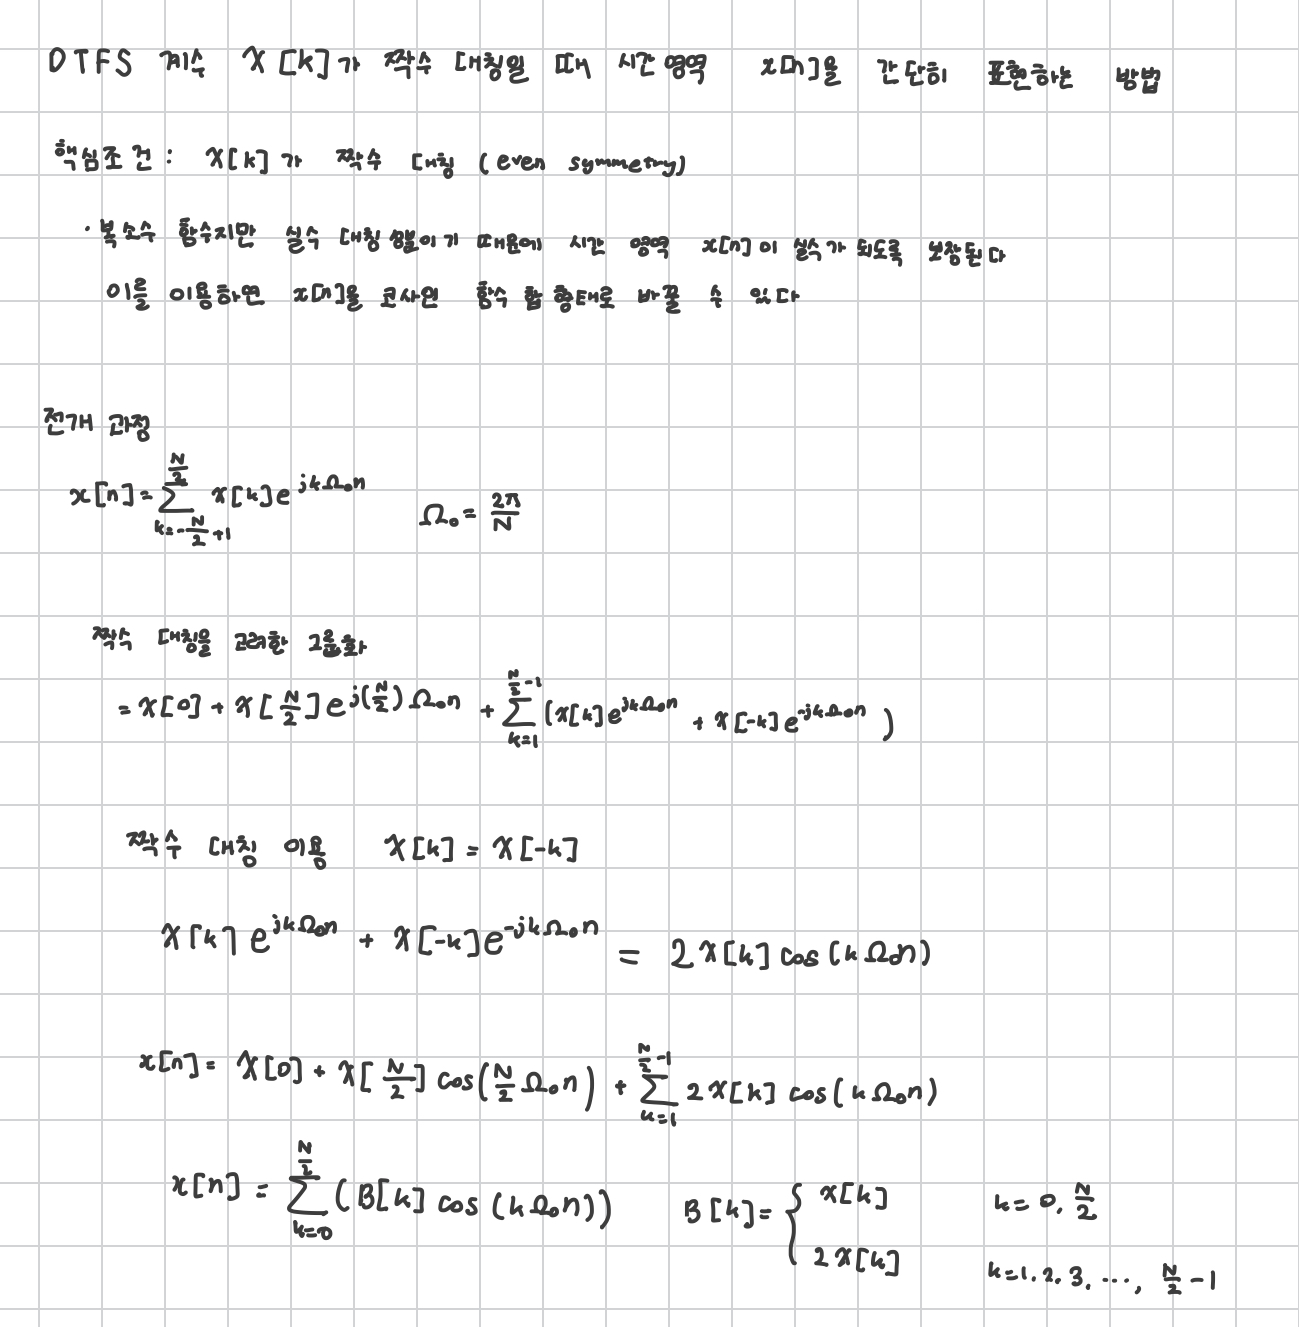 DTFS 계수 X[k]가 짝수 대칭일 때 시간 영역 x[n]을 간단히 표현하는 방법
핵심조건: X[k]가 짝수 대칭 (even symmetry)
· 복소수 함수지만 실수 대칭 성분이기 때문에 시간 영역 x[n]이 실수가 되도록 보장된다
이를 이용하면 x[n]을 코사인 함수 합 형태로 바꿀 수 있다
전개 과정
x[n] = \sum_{k=-\frac{N}{2}+1}^{\frac{N}{2}} X[k] e^{jkΩ₀n}    Ω₀ = \frac{2π}{N}
짝수 대칭을 고려한 그룹화
= X[0] + X[\frac{N}{2}] e^{j(\frac{N}{2})Ω₀n} + \sum_{k=1}^{\frac{N}{2}-1} (X[k] e^{jkΩ₀n} + X[-k] e^{-jkΩ₀n})
짝수 대칭 이용 X[k] = X[-k]
X[k] e^{jkΩ₀n} + X[-k] e^{-jkΩ₀n} = 2X[k] cos(kΩ₀n)
x[n] = X[0] + X[\frac{N}{2}] cos(\frac{N}{2}Ω₀n) + \sum_{k=1}^{\frac{N}{2}-1} 2X[k] cos(kΩ₀n)
x[n] = \sum_{k=0}^{\frac{N}{2}} (B[k] cos(kΩ₀n))    B[k] = { X[k]    k=0, \frac{N}{2}
2X[k]    k=1, 2, 3, ⋯, \frac{N}{2}-1